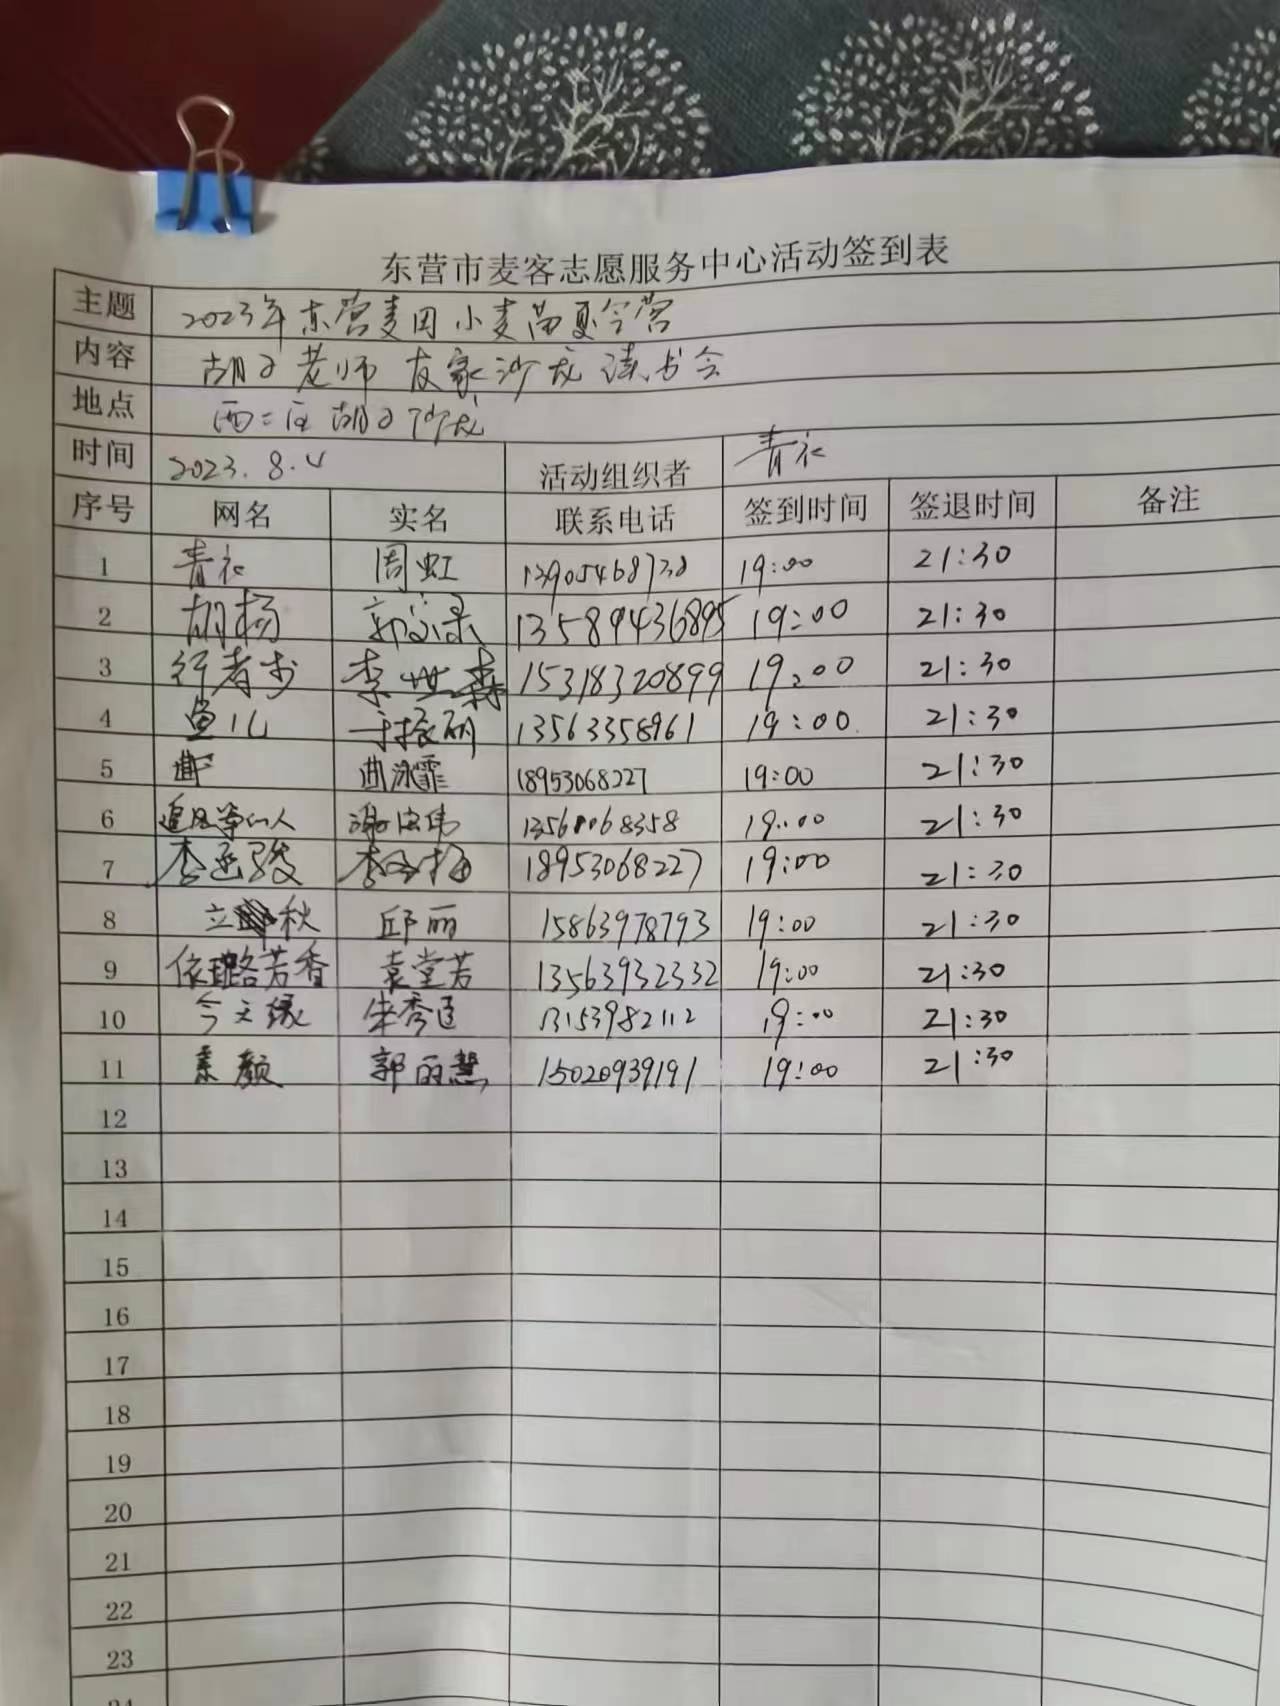 东营市麦客志愿服务中心活动签到表
主题 2023年东营麦田小麦苗夏令营
内容 胡子老师友家沙龙读书会
地点 西二区胡子沙龙
时间 2023.8.4 活动组织者 青衣
序号 网名 实名 联系电话 签到时间 签退时间 备注
1 青衣 周虹 19:00 21:30
2 胡杨 13589436895 19:00 21:30
3 行者步 李世森 15318320899 19:00 21:30
4 鱼儿 于振朋 13563358961 19:00 21:30
5 曲 曲泳霏 18953068227 19:00 21:30
6 19:00 21:30
7 李 18953068227 19:00 21:30
8 立秋 邱丽 15863978793 19:00 21:30
9 依璐芳香 袁堂芳 13563932332 19:00 21:30
10 今之缘 13153982112 19:00 21:30
11 素颜 郭丽慧 15020939191 19:00 21:30
12
13
14
15
16
17
18
19
20
21
22
23
24